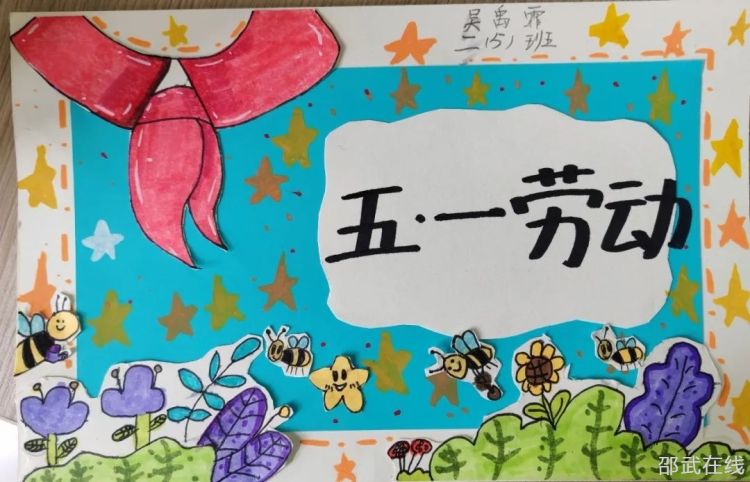 吴禹霏
二（5）班
五·一劳动
邵武在线